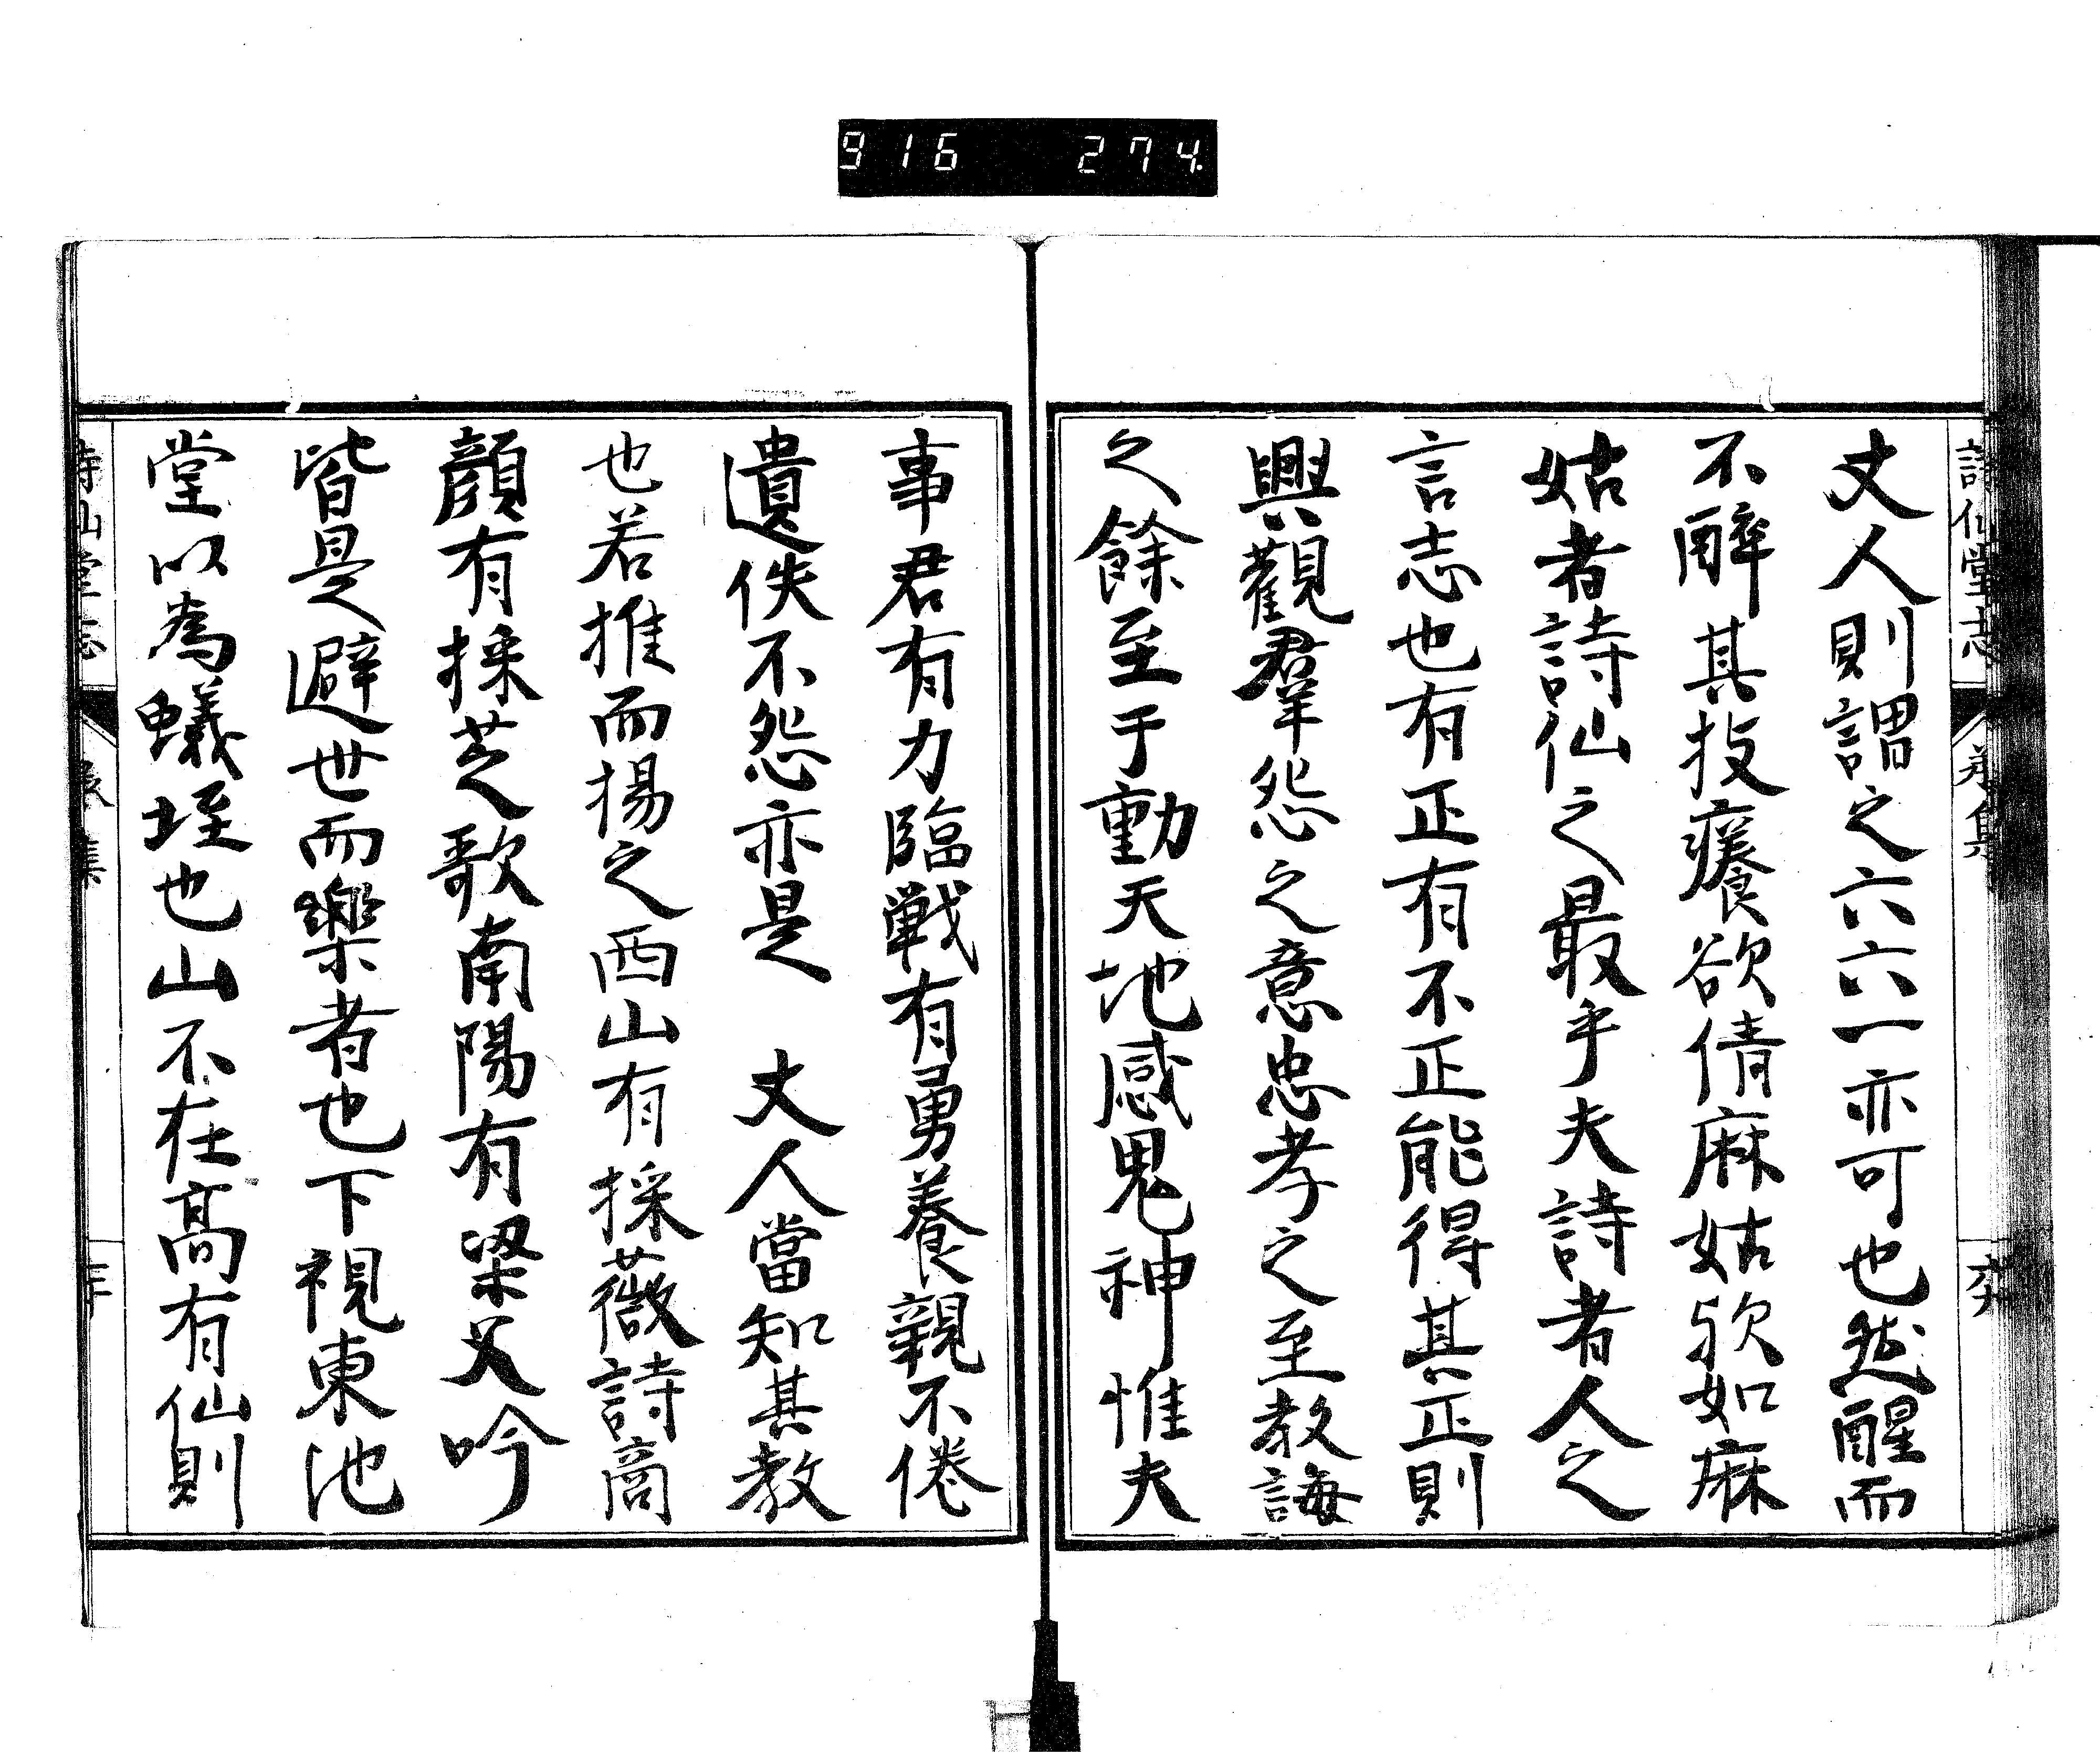 916 274
詩仙堂志
丈人則謂之六六一亦可也然醒而
不醉其技癢欲倩麻姑歟如麻
姑者詩仙之最乎夫詩者人之
言志也有正有不正能得其正則
興觀羣怨之意忠孝之至教誨
之餘至于動天地感鬼神惟夫
事君有力臨戦有勇養親不倦
遺佚不怨亦是 丈人當知其教
也若推而揚之西山有採薇詩商
顔有採芝歌南陽有梁父吟
皆是避世而樂者也下視東池
堂以為蟻垤也山不在高有仙則
詩仙堂志